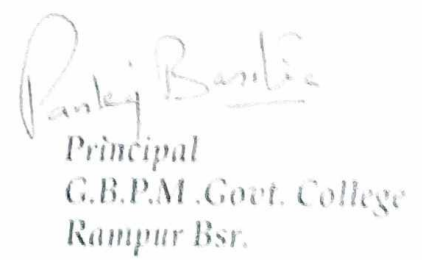 Pankij Basstie
Principal
G.B.P.M .Govt. College
Rampur Bsr.